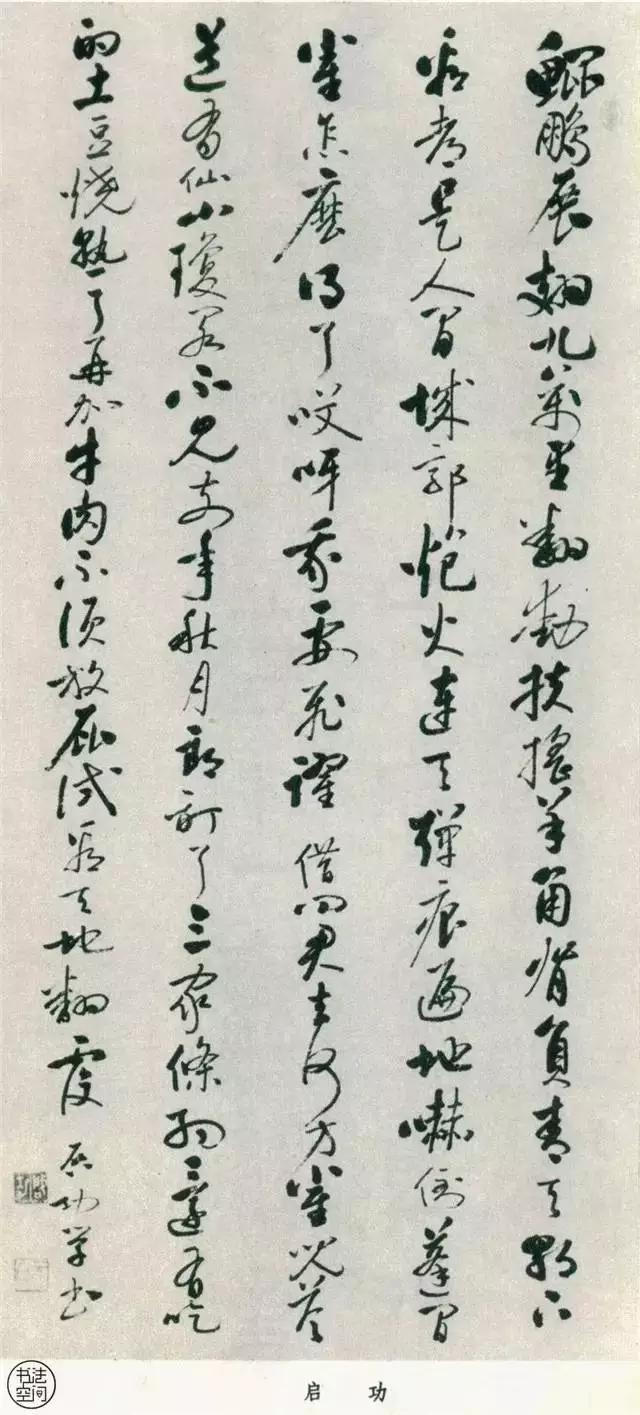 鯤鵬展翅九萬里翻動扶搖羊角背負青天朝下
看都是人間城郭炮火連天彈痕遍地嚇倒蓬間
雀怎麽得了哎呀我要飛躍 借問君去何方雀兒答
道有仙山瓊閣不見前年秋月朗訂了三家條約還有吃
的土豆燒熟了再加牛肉不須放屁試看天地翻覆 启功學書
书法
空间
启 功